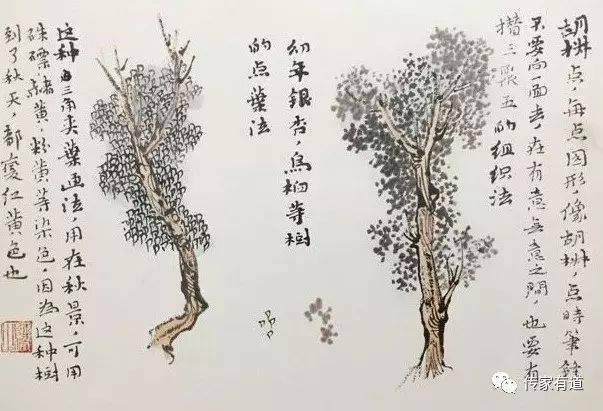 胡椒点，每点圆形，像胡椒，点时筆鋒
不要向一面去，在有意無意之間，也要有
攒三聚五的组织法
幼年銀杏，烏桕等樹
的点葉法
这种由三角夹葉画法，用在秋景，可用
硃磦，赭黄，粉黄等染色，因为这种樹
到了秋天，都變红黄色也
传家有道